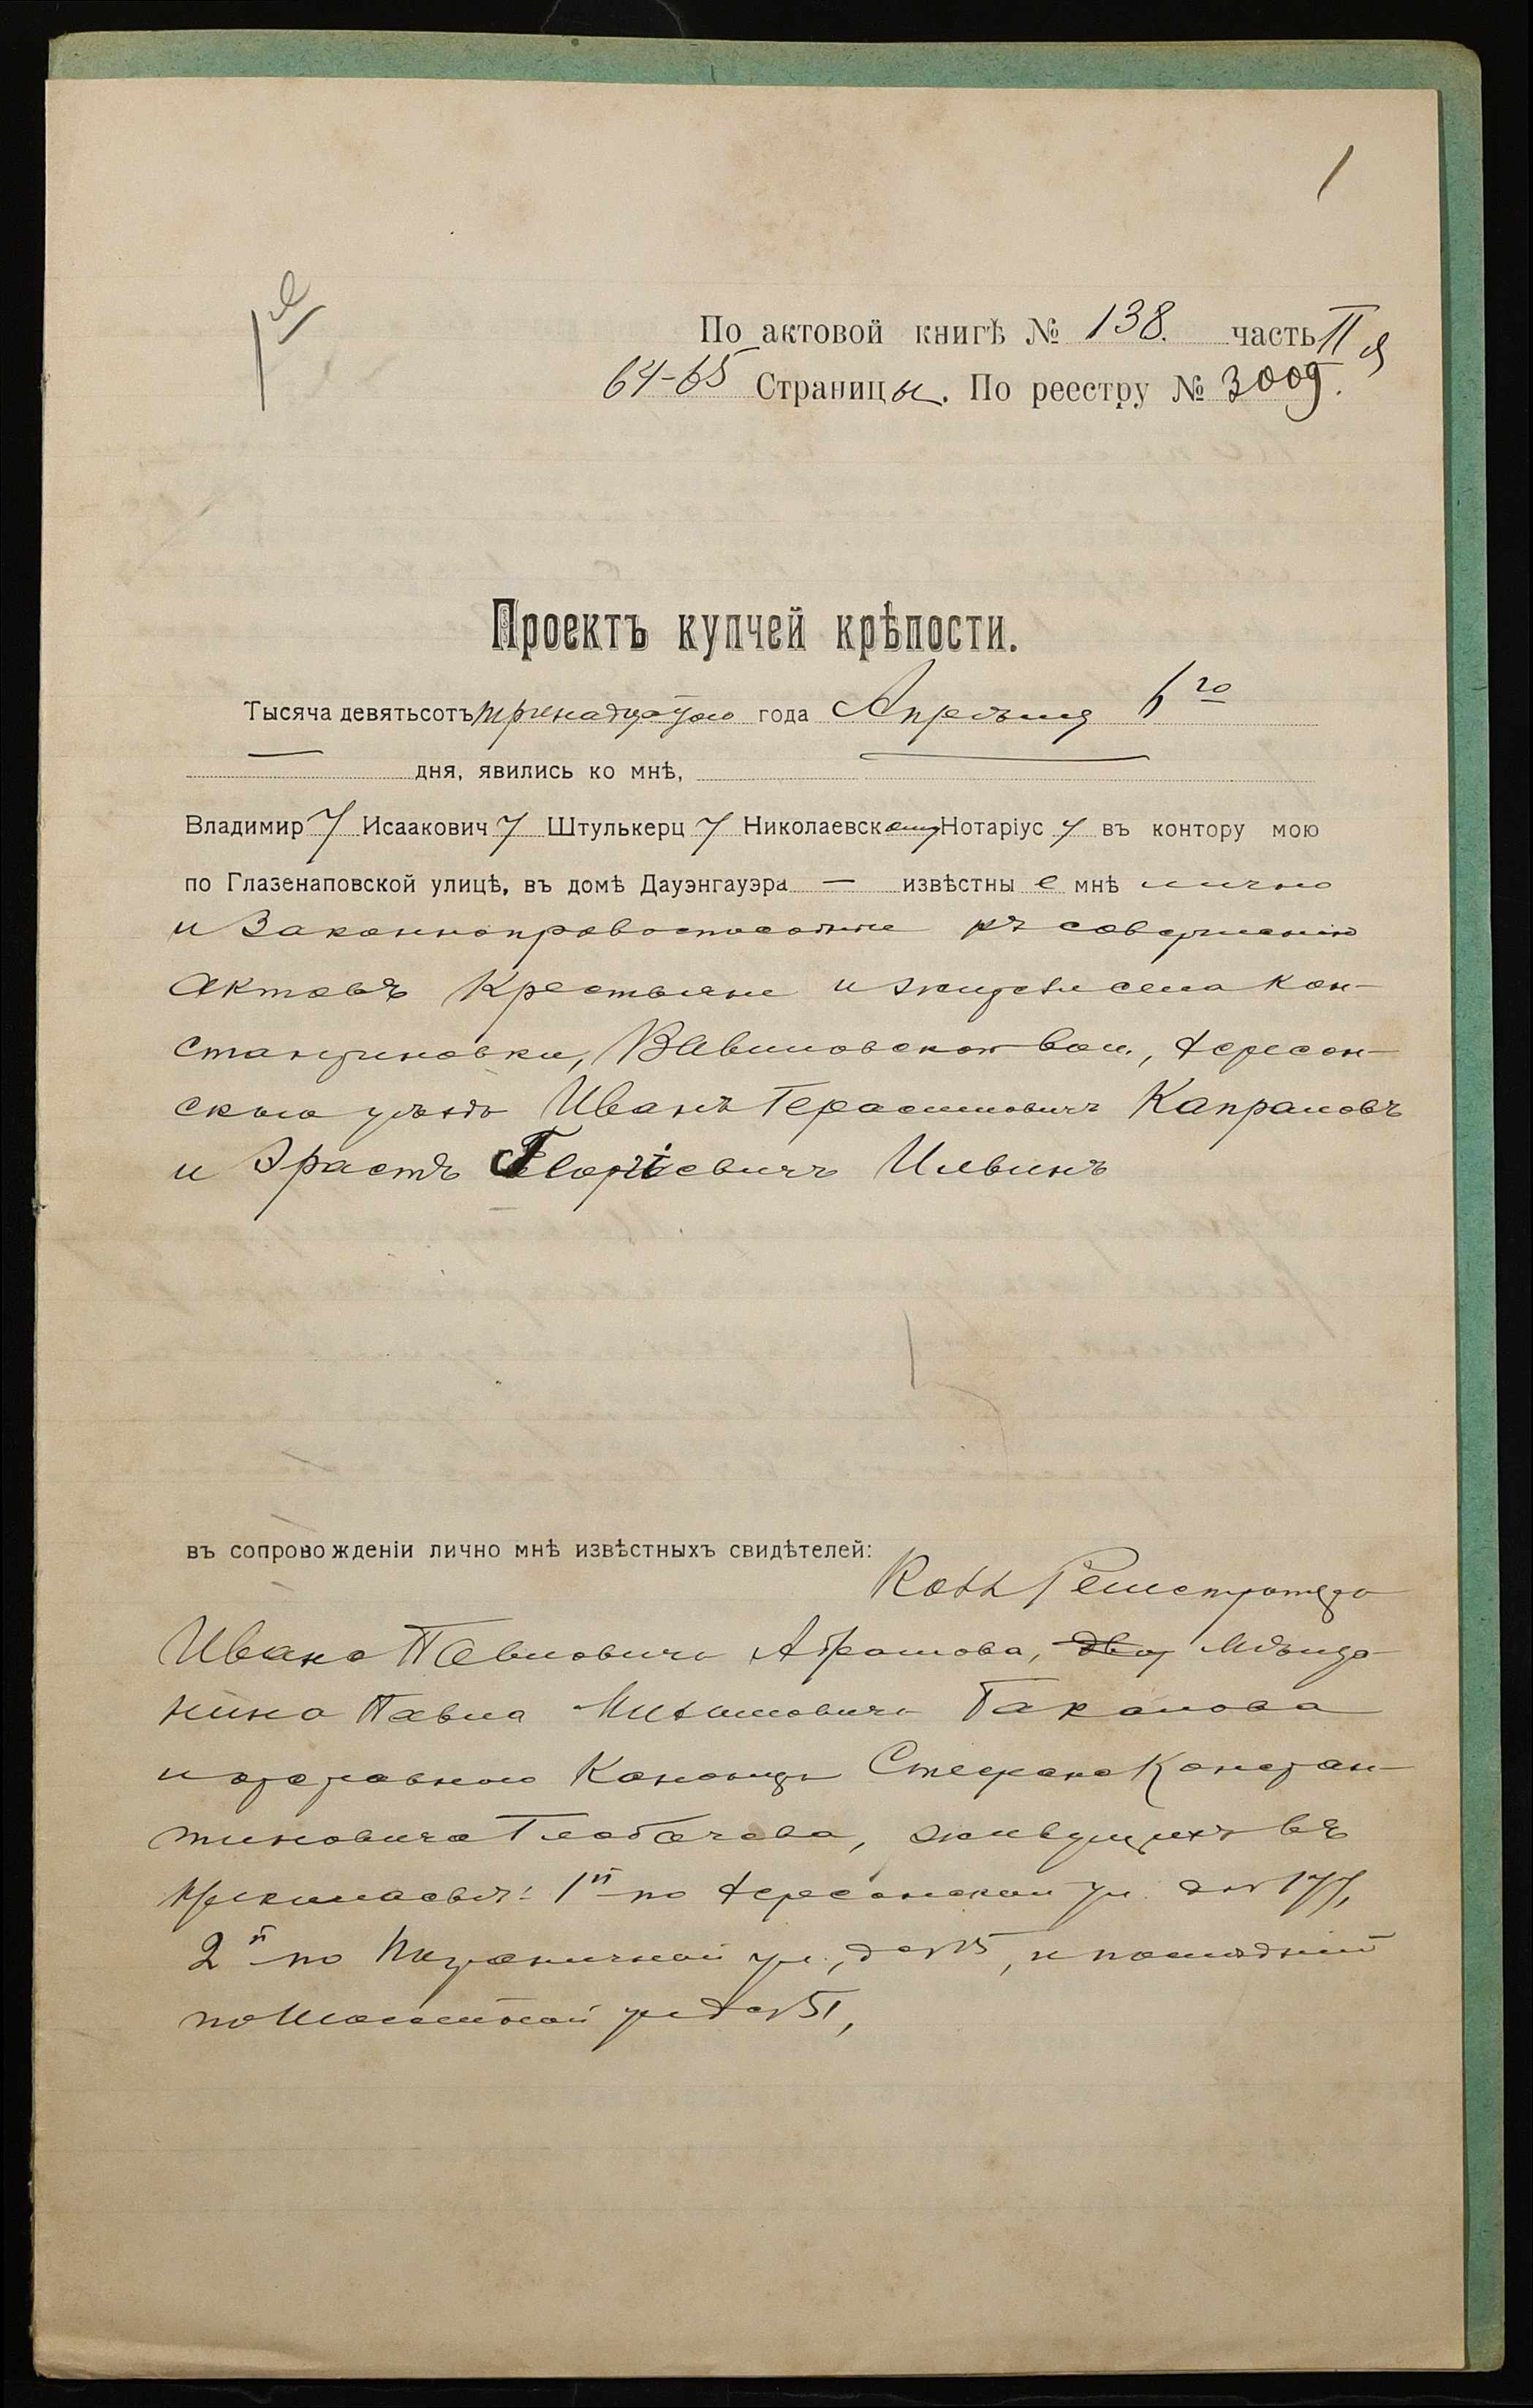 1
1й
По актовой книгѣ № 138. часть II я
64-65 Страницы. По реестру № 3009.
Проектъ купчей крѣпости.
Тысяча девятьсотъ тринадцатаго года Апрѣля 6го
дня, явились ко мнѣ,
Владимиру Исааковичу Штулькерцу Николаевскому Нотаріусу въ контору мою
по Глазенаповской улицѣ, въ домѣ Дауэнгауэра — извѣстные мнѣ лично
и законноправоспособные къ совершенію
актовъ Крестьяне и жители села Кон-
стантиновки, Вавиловской вол., Херсон-
скаго уѣзда Иванъ Герасимовичъ Капрановъ
и Эрастъ Георгіевичъ Ильинъ
въ сопровожденіи лично мнѣ извѣстныхъ свидѣтелей:
Кол. Регистратора
Ивана Павловича Абрамова, Мѣща-
нина Павла
и Степана Констан-
тиновича Глобачева, живущихъ въ
Николаевѣ: 1й по Херсонской ул. д. №
2й по Пограничной ул., д. № 5, и послѣдній
по ул. д. № 51,